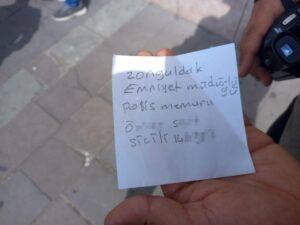 zonguldak
Emniyet müdürlü
ğü
polis memuru
sicili